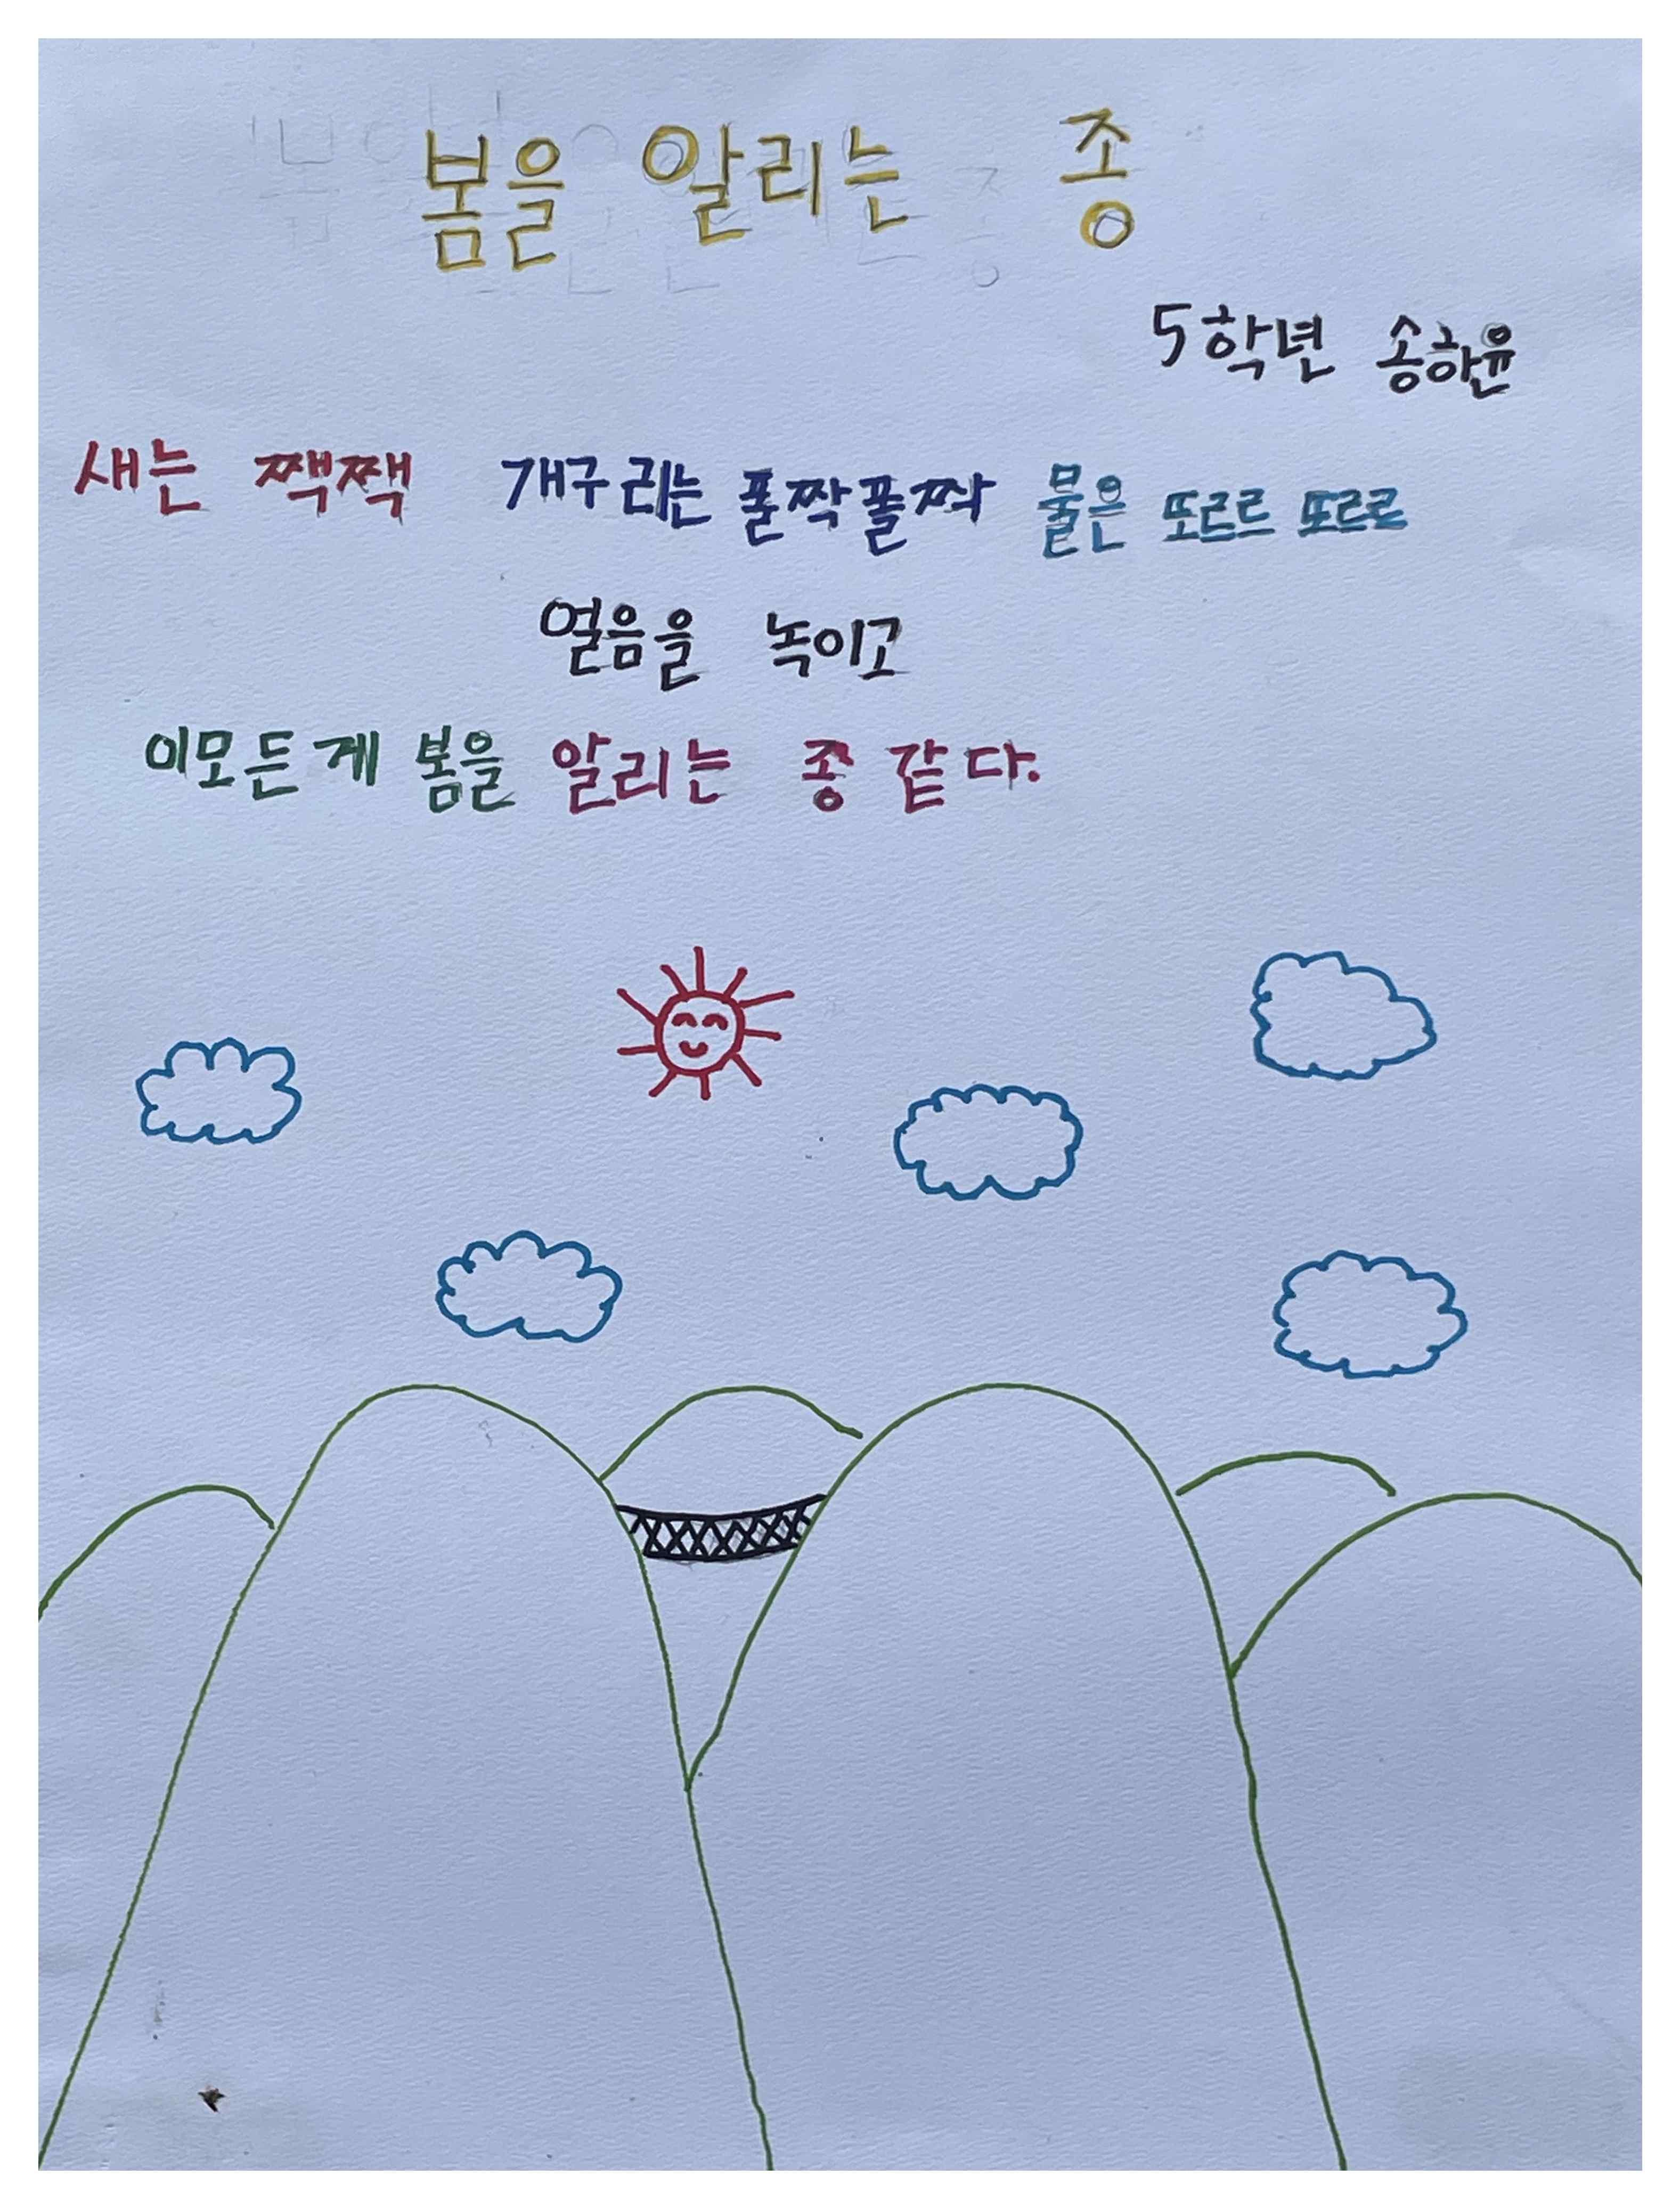 봄을 알리는 종
5학년 송하윤
새는 짹짹 개구리는 폴짝폴짝 물은 또르르 또르르
얼음을 녹이고
이모든게 봄을 알리는 종 같다.